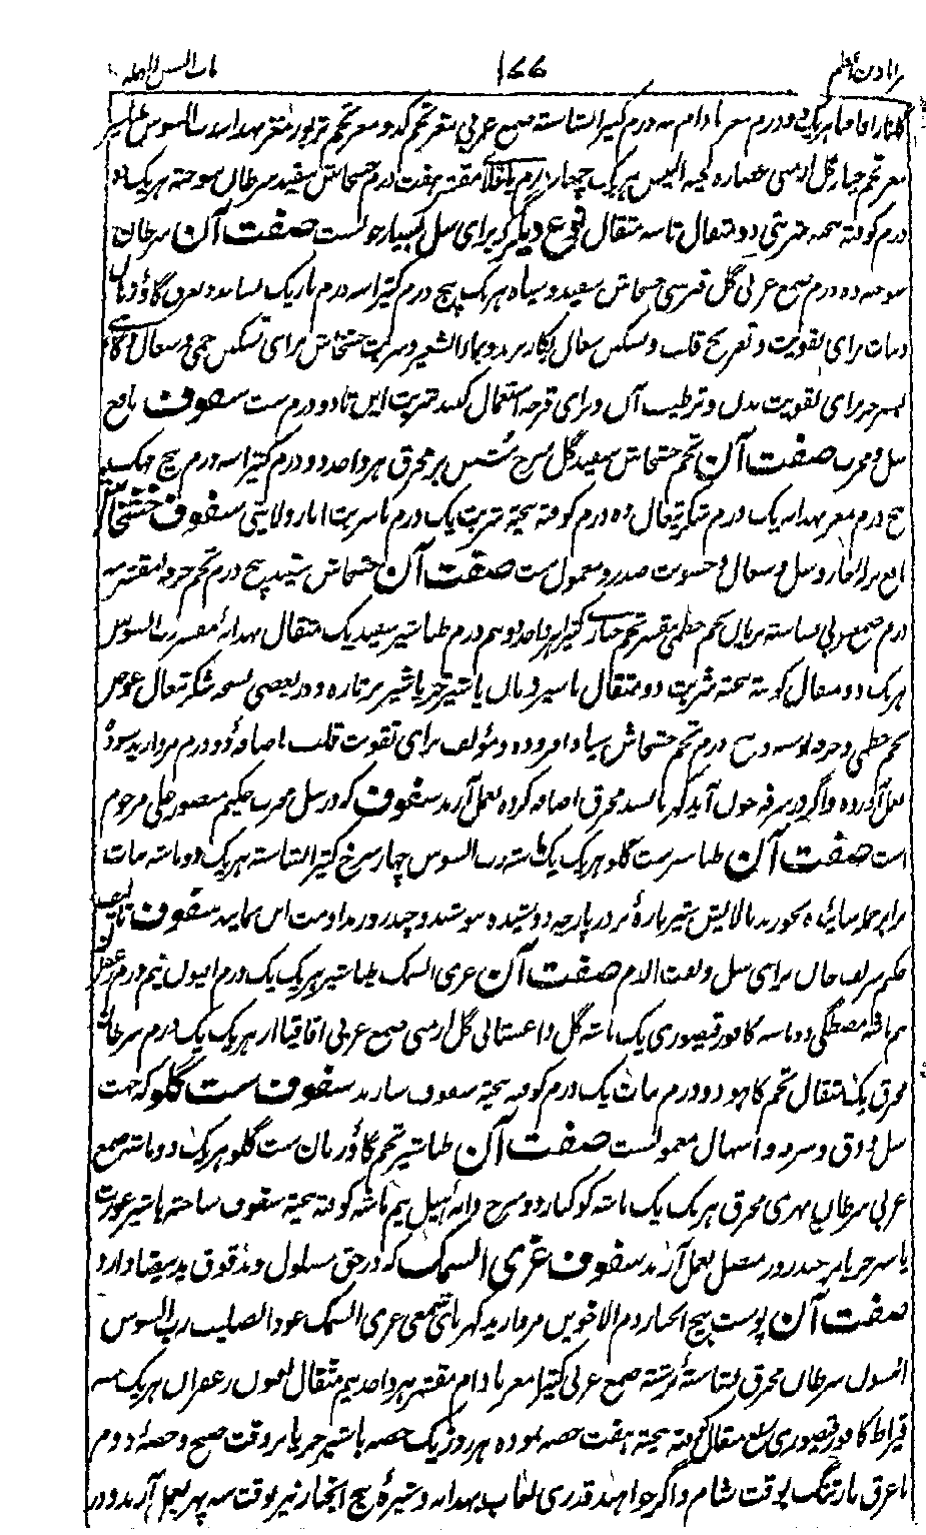 باب السین المهمله ۱۷۷ قرابادین اعظم
گلنار اقاقیا هریک دو درم مغز بادام سه درم کتیرا نشاسته صمغ عربی مغز تخم کدو مغز تخم تربوز مغز بهدانه رب السوس طباشیر
مغز تخم خیار گل ارمنی عصاره لحیة التیس هریک چهار درم باقلا مقشر هفت درم خشخاش سفید سرطان سوخته هریک ده
درم کوفته بیخته شربتی دو مثقال تا سه مثقال نوع دیگر که برای سل بسیار خوبست صفت آن سرطان
سوخته ده درم صمغ عربی گل قبرسی خشخاش سفید و سیاه هریک پنج درم کتیرا سه درم باریک بسایند و بعرق گاوزبان
و نبات برای تقویت و تفریح قلب و تسکین سعال بکار برند و بماء الشعیر و شربت خشخاش برای تسکین حمی و سعال و گاهی
بشیر خر برای تقویت بدن و ترطیب آن و برای قرحه استعمال کنند شربت این تا دو درم ست سفوف نافع
سل و مجرب صفت آن تخم خشخاش سفید گل سرخ شمس بر محرق هر واحد دو درم کتیرا سه درم بیخ مهک
پنج درم مغز بهدانه یک درم شکر تیغال ده درم کوفته بیخته شربت یک درم با شربت انار ولایتی سفوف خشخاش
نافع برای بخار و سل و سعال و خشونت صدر و معمول ست صفت آن خشخاش سفید پنج درم تخم خرفه مقشر سه
درم صمغ عربی نشاسته بریان تخم خطمی مقشر تخم خیار کتیرا هر واحد دو نیم درم طباشیر سفید یک مثقال بهدانه مقشر رب السوس
هریک دو مثقال کوفته بیخته شربت دو مثقال با شیر زنان یا شیر خر یا شیر بز تازه و در بعضی نسخه شکر تیغال عوض
تخم خطمی و خرفه نوشته و پنج درم تخم خشخاش سیاه افزوده و مؤلف برای تقویت قلب اضافه دو درم مروارید سوده
بعمل آورده و اگر در سرفه خون آید کهربا بسد محرق اضافه کرده بعمل آرند سفوف که در سل مجرب حکیم منصور علی مرحوم
است صفت آن طباشیر ست گلو هریک یک ماشه رب السوس چهار سرخ کتیرا نشاسته هریک دو ماشه نبات
برابر همه سائیده بخورند بالایش شیر تازه بز در پارچه دوشیده نوشند و چند روز مداومت این نمایند سفوف تالیف
حکیم شریف خان برای سل و نفث الدم صفت آن غری السمک طباشیر هریک یک درم افیون نیم درم زعفران
نیم ماشه مصطکی دو ماشه کافور قیصوری یک ماشه گل داغستانی گل ارمنی صمغ عربی اقاقیا از هریک یک درم سرطان
محرق یک مثقال تخم کاهو دو درم نبات یک درم کوفته بیخته سفوف سازند سفوف ست گلو که جهت
سل و دق و سرفه و اسهال معمولست صفت آن طباشیر تخم گاوزبان ست گلو هریک دو ماشه صمغ
عربی سرطان نهری محرق هریک یک ماشه کوکنار دو سرخ دانه هیل نیم ماشه کوفته بیخته سفوف ساخته با شیر عورت
یا شیر خر یا بز چند روز متصل بعمل آرند سفوف غری السمک که در حق مسلول و مدقوق ید بیضا دارد
صفت آن پوست بیخ انجبار دم الاخوین مروارید کهربای شمعی غری السمک عود الصلیب رب السوس
افیون سرطان محرق نشاسته برشته صمغ عربی کتیرا مغز بادام مقشر هر واحد نیم مثقال افیون زعفران هریک سه
قیراط کافور قیصوری ربع مثقال کوفته بیخته هفت حصه نموده هر روز یک حصه با شیر خر یا بز وقت صبح و حصه دوم
با عرق بارتنگ بوقت شام و اگر خواهند قدری لعاب بهدانه و شیره بیخ انجبار نیز بوقت سه پهر بعمل آرند و در